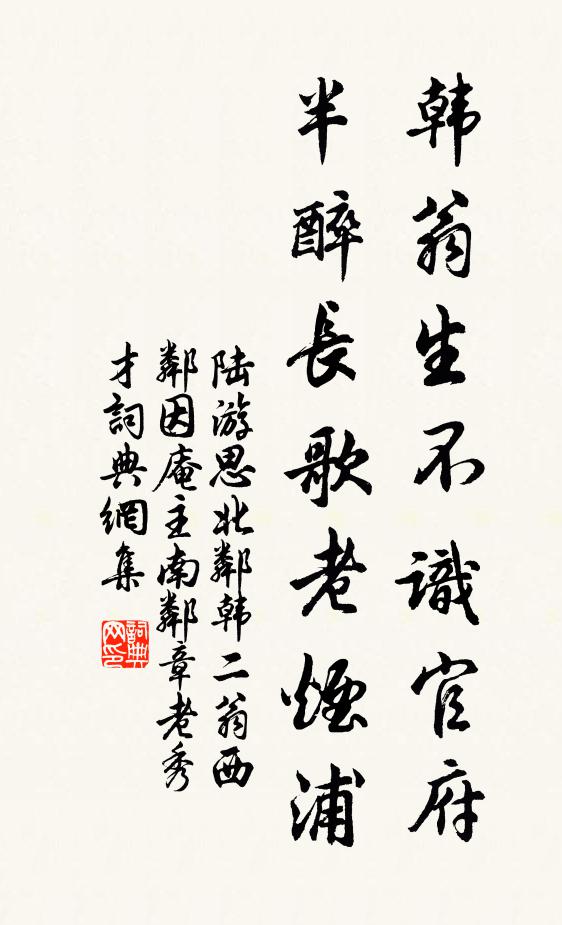 韩翁生不識官府
半醉長歌老煙浦
陆游思北鄰韩二翁西
鄰因庵主南鄰章老秀
才詞典網集
詞典
网印